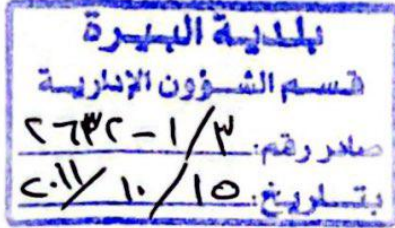 بلدية البيرة
قسم الشؤون الإدارية
صادر رقم: ٣/١-٢٦٣٢
بتاريخ: ١٥/١٠/٢٠١١